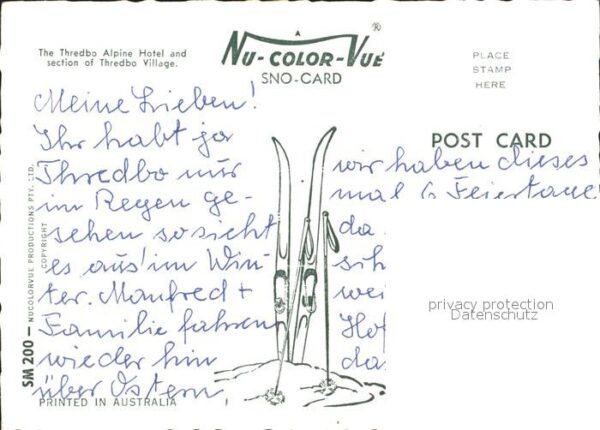 The Thredbo Alpine Hotel and
section of Thredbo Village.
A
NU-COLOR-VUE®
SNO-CARD
PLACE
STAMP
HERE
POST CARD
Meine Lieben!
Ihr habt ja
Thredbo nur
im Regen ge-
sehen so sieht
es aus im Win-
ter. Manfred +
Familie fahren
wieder hin
über Ostern,
wir haben dieses
mal 6 Feiertage
da
sih
wei
Hof
da
privacy protection
Datenschutz
SM 200 – NUCOLORVUE PRODUCTIONS PTY. LTD.
COPYRIGHT
PRINTED IN AUSTRALIA